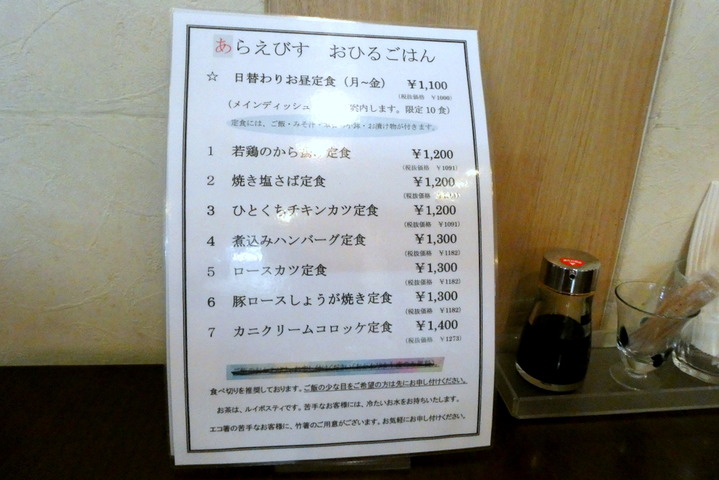 あらえびす おひるごはん
☆ 日替わりお昼定食（月~金） ￥1,100
（税抜価格 ￥1000）
（メインディッシュ 案内します。限定10食）
定食には、ご飯・みそ汁・ 小鉢・お漬け物が付きます。
1 若鶏のから揚げ定食 ￥1,200
（税抜価格 ￥1091）
2 焼き塩さば定食 ￥1,200
（税抜価格
3 ひとくちチキンカツ定食 ￥1,200
（税抜価格 ￥1091）
4 煮込みハンバーグ定食 ￥1,300
（税抜価格 ￥1182）
5 ロースカツ定食 ￥1,300
（税抜価格 ￥1182）
6 豚ロースしょうが焼き定食 ￥1,300
（税抜価格 ￥1182）
7 カニクリームコロッケ定食 ￥1,400
（税抜価格 ￥1273）
食べ切りを推奨しております。ご飯の少な目をご希望の方は先にお申し付けください。
お茶は、ルイボスティです。苦手なお客様には、冷たいお水をお持ちいたします。
エコ箸の苦手なお客様に、竹箸のご用意がございます。お気軽にお申し付けください。